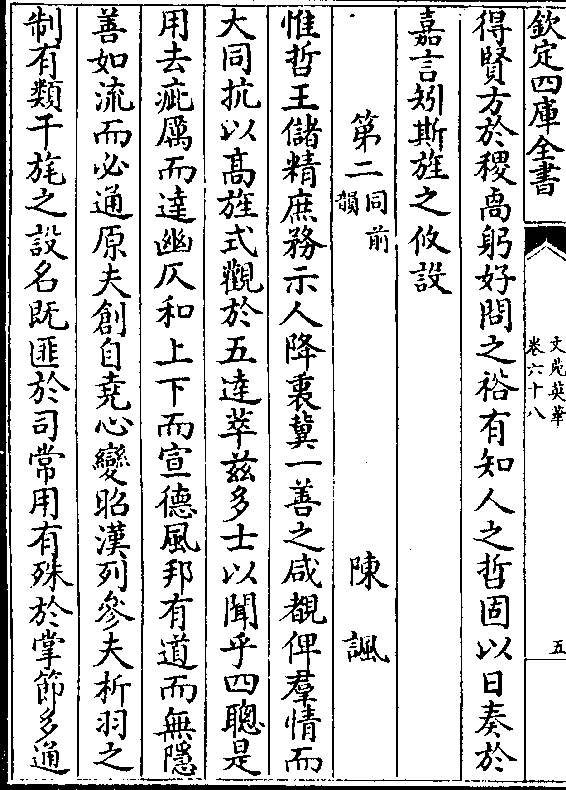 欽定四庫全書
文苑英華
卷六十八
五
得賢方於稷卨躬好問之裕有知人之哲固以日奏於
嘉言矧斯旌之攸設
第二 同前韻 陳諷
惟哲王儲精庶務示人降衷冀一善之咸覩俾羣情而
大同抗以高旌式觀於五達萃兹多士以聞乎四聰是
用去疵厲而達幽仄和上下而宣德風邦有道而無隱
善如流而必通原夫創自堯心變昭漢列參夫析羽之
制有類干旄之設名既匪於司常用有殊於掌節多通